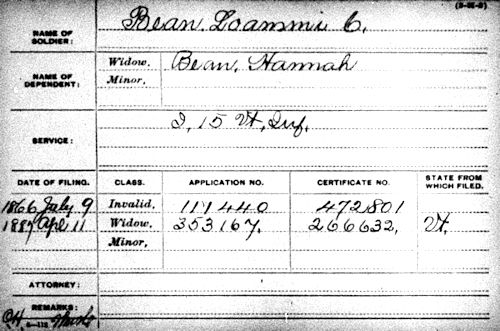 (3-16-2)
NAME OF SOLDIER: Bean, Loammi C.
NAME OF DEPENDENT: Widow, Bean, Hannah
Minor,
SERVICE: I, 15 Vt. Inf.
DATE OF FILING. CLASS. APPLICATION NO. CERTIFICATE NO. STATE FROM WHICH FILED.
1866 July 9 Invalid, 111440 472801
1887 Apl 11 Widow, 353167, 266632, Vt.
Minor,
ATTORNEY:
REMARKS: